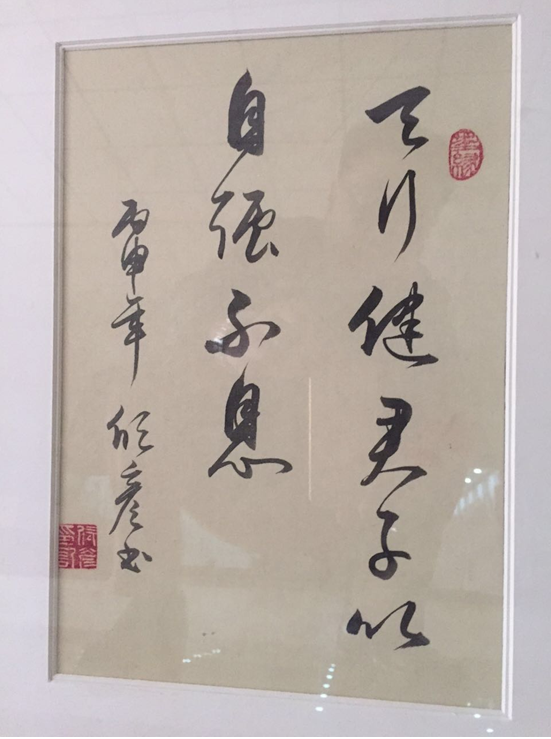 天行健君子以
自强不息
丙申年 彦书